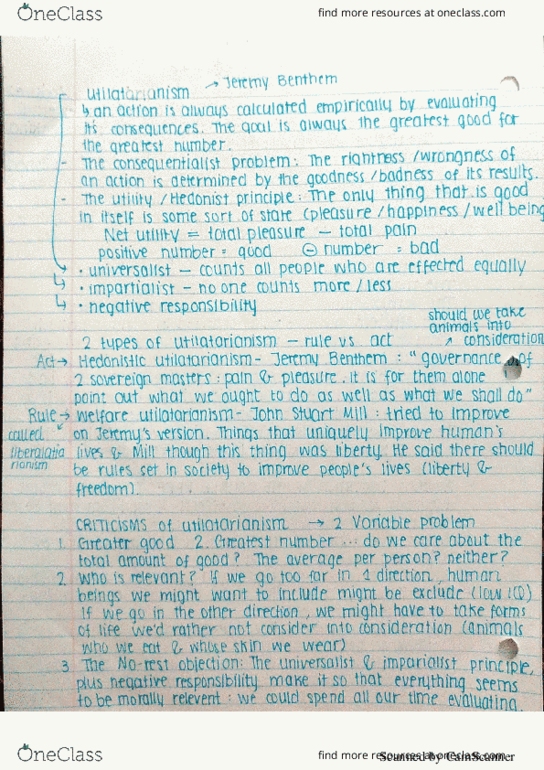 OneClass
find more resources at oneclass.com
utilatarianism → Jeremy Benthem
↳ an action is always calculated empirically by evaluating
its consequences. The goal is always the greatest good for
the greatest number.
- The consequentialist problem: The rightress/wrongness of
an action is determined by the goodness/badness of its results.
- The utility/Hedonist principle: The only thing that is good
in itself is some sort of state (pleasure/happiness/well being
Net utility = total pleasure - total pain
positive number = good ⊖ number = bad
• universalist - counts all people who are effected equally
↳ • impartialist - no one counts more/less
↳ • negative responsibility
should we take
animals into
↗ consideration
2 types of utilatarianism - rule vs. act
Act → Hedonistic utilatarianism- Jeremy Benthem: "governance of
2 sovereign masters: pain & pleasure. it is for them alone
point out what we ought to do as well as what we shall do"
Rule → welfare utilatarianism- John Stuart Mill: tried to improve
called on Jeremy's version. Things that uniquely improve human's
liberalatia lives & Mill though this thing was liberty. He said there should
rianism be rules set in society to improve people's lives (liberty &
freedom).
CRITICISMS of utilatarianism → 2 Variable problem
1. Greater good 2. Greatest number ... do we care about the
total amount of good? The average per person? neither?
2. who is relevant? If we go too far in 1 direction, human
beings we might want to include might be exclude (low IQ)
If we go in the other direction, we might have to take forms
of life we'd rather not consider into consideration (animals
who we eat & whose skin we wear)
3. The No-rest objection: The universalist & imparialist principle,
plus negative responsibility make it so that everything seems
to be morally relevent: we could spend all our time evaluating.
OneClass
find more resources at oneclass.com
Scanned by CamScanner